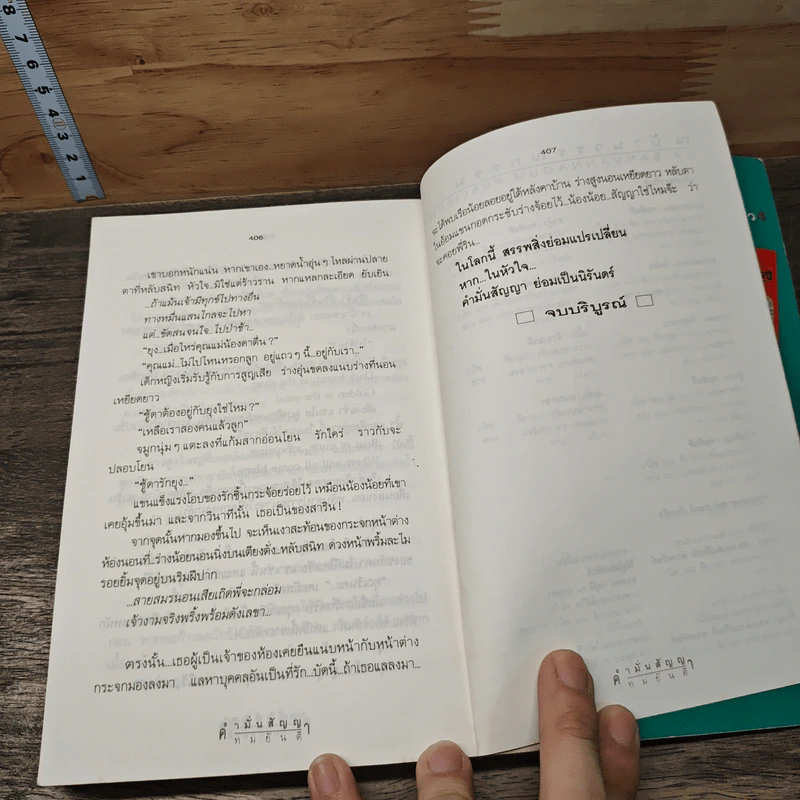 8
7
6
5
4
3
2
1
406
เขาบอกหนักแน่น หากเขาเอง...หยาดน้ำอุ่นๆ ไหลผ่านปลาย
ตาที่หลับสนิท หัวใจ..มิใช่แต่ร้าวราน หากแหลกละเอียด ยับเยิน
...ถ้าแม้นเจ้ามีทุกข์ไปทางอื่น
ทางหมื่นแสนไกลจะไปหา
แต่..ขัดสนจนใจ..ไปป่าช้า...
"ยุง...เมื่อไหร่คุณแม่น้องตาตื่น?"
"คุณแม่...ไม่ไปไหนหรอกลูก อยู่แถวๆ นี้...อยู่กับเรา..."
เด็กหญิงเริ่มรับรู้กับการสูญเสีย ร่างอุ่นขดลงแนบร่างที่นอน
เหยียดยาว
"ซู้ดาต้องอยู่กับยุงใช่ไหม?"
"เหลือเราสองคนแล้วลูก"
จมูกนุ่มๆ แตะลงที่แก้มสากอ่อนโยน รักใคร่ ราวกับจะ
ปลอบโยน
"ซู้ดารักยุง..."
แขนแข็งแรงโอบของรักชิ้นกระจ้อยร่อยไว้ เหมือนน้องน้อยที่เขา
เคยอุ้มขึ้นมา และจากวินาทีนั้น เธอเป็นของสาริน!
จากจุดนั้นหากมองขึ้นไป จะเห็นเงาสะท้อนของกระจกหน้าต่าง
ห้องนอนที่..ร่างน้อยนอนนิ่งบนเตียงตั่ง..หลับสนิท ดวงหน้าพริ้มละไม
รอยยิ้มจุดอยู่บนริมฝีปาก
...สายสมรนอนเสียเถิดพี่จะกล่อม
เจ้างามจริงพริ้งพร้อมดังเลขา...
ตรงนั้น...เธอผู้เป็นเจ้าของห้องเคยยืนแนบหน้ากับหน้าต่าง
กระจกมองลงมา แลหาบุคคลอันเป็นที่รัก...บัดนี้...ถ้าเธอแลลงมา...
คำมั่นสัญญา
ทมยันตี
407
จะได้พบเรือน้อยลอยอยู่ใต้หลังคาบ้าน ร่างสูงนอนเหยียดยาว หลับตา
ในอ้อมแขนกอดกระชับร่างจ้อยไว้...น้องน้อย...สัญญาใช่ไหมจ๊ะ ว่า
จะคอยพี่ริน...
ในโลกนี้ สรรพสิ่งย่อมแปรเปลี่ยน
หาก...ในหัวใจ...
คำมั่นสัญญา ย่อมเป็นนิรันดร์
จบบริบูรณ์
คำมั่นสัญญา
ทมยันตี